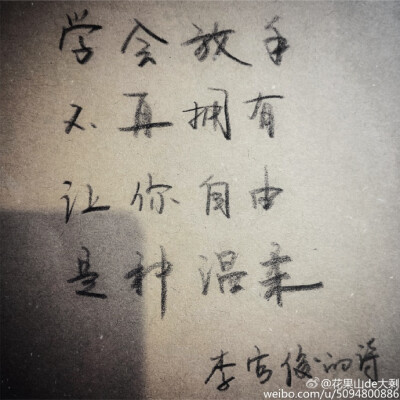 学会放手
不再拥有
让你自由
是种温柔
李宫俊的诗
@花果山de大剩
weibo.com/u/5094800886